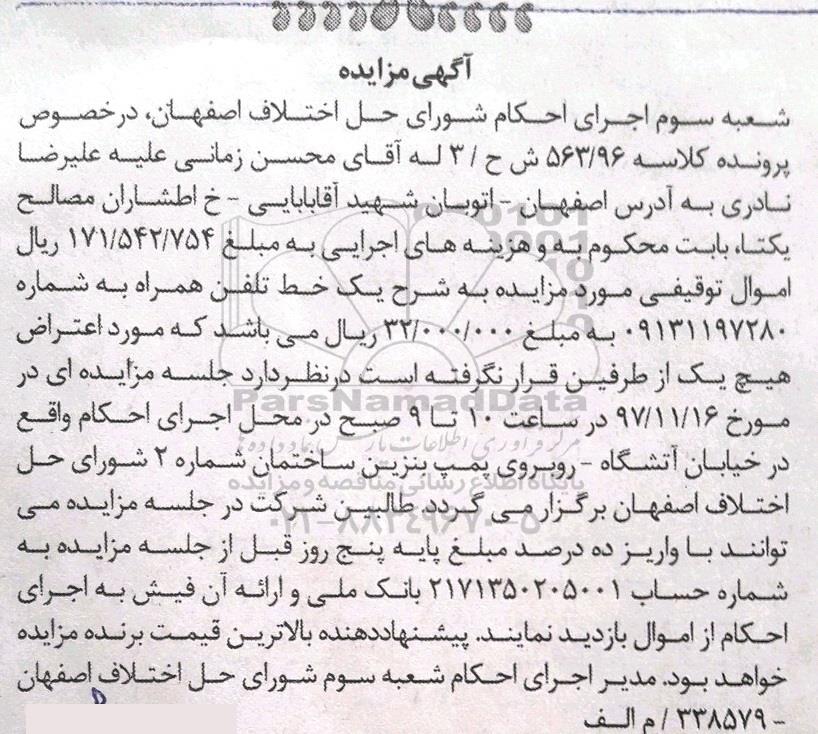 آگهی مزایده
شعبه سوم اجرای احکام شورای حل اختلاف اصفهان، درخصوص
پرونده کلاسه ۵۶۳/۹۶ ش ح / ۳ له آقای محسن زمانی علیه علیرضا
نادری به آدرس اصفهان - اتوبان شهید آقابابایی - خ اطشاران مصالح
یکتا، بابت محکوم به و هزینه های اجرایی به مبلغ ۱۷۱/۵۴۲/۷۵۴ ریال
اموال توقیفی مورد مزایده به شرح یک خط تلفن همراه به شماره
۰۹۱۳۱۱۹۷۲۸۰ به مبلغ ۳۲/۰۰۰/۰۰۰ ریال می باشد که مورد اعتراض
هیچ یک از طرفین قرار نگرفته است درنظردارد جلسه مزایده ای در
ParsNamadData
مورخ ۹۷/۱۱/۱۶ در ساعت ۱۰ تا ۹ صبح در محل اجرای احکام واقع
در خیابان آتشگاه - روبروی پمپ بنزین ساختمان شماره ۲ شورای حل
پایگاه اطلاع رسانی مناقصه و مزایده
اختلاف اصفهان برگزار می گردد طالبین شرکت در جلسه مزایده می
۰۲۱-۸۸۳۴۹۶۷۰-۵
توانند با واریز ده درصد مبلغ پایه پنج روز قبل از جلسه مزایده به
شماره حساب ۲۱۷۱۳۵۰۲۰۵۰۰۱ بانک ملی و ارائه آن فیش به اجرای
احکام از اموال بازدید نمایند. پیشنهاددهنده بالاترین قیمت برنده مزایده
خواهد بود. مدیر اجرای احکام شعبه سوم شورای حل اختلاف اصفهان
- ۳۳۸۵۷۹ / م الف